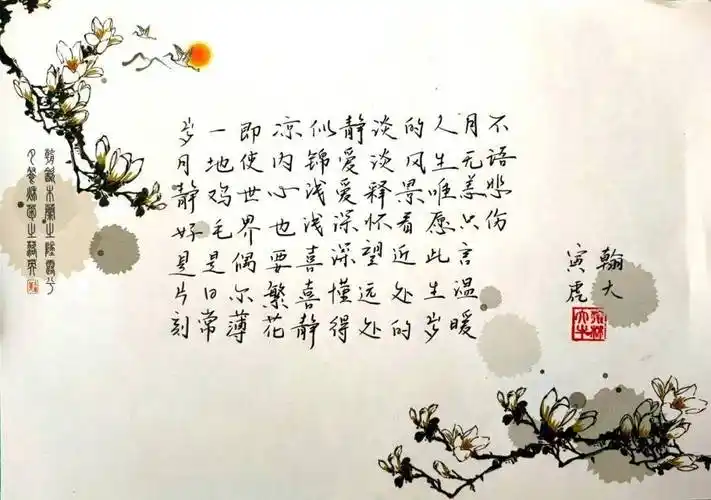 岁月静好是片刻
一地鸡毛是日常
即使世界偶尔薄
凉内心也要繁花
似锦浅浅喜喜静
静爱爱深深懂得
淡淡释怀望远处
的风景看近处的
人生唯愿此生岁
月无恙只言温暖
不语悲伤
寅虎
翰大
朝飲木蘭之墜露兮
夕餐秋菊之落英